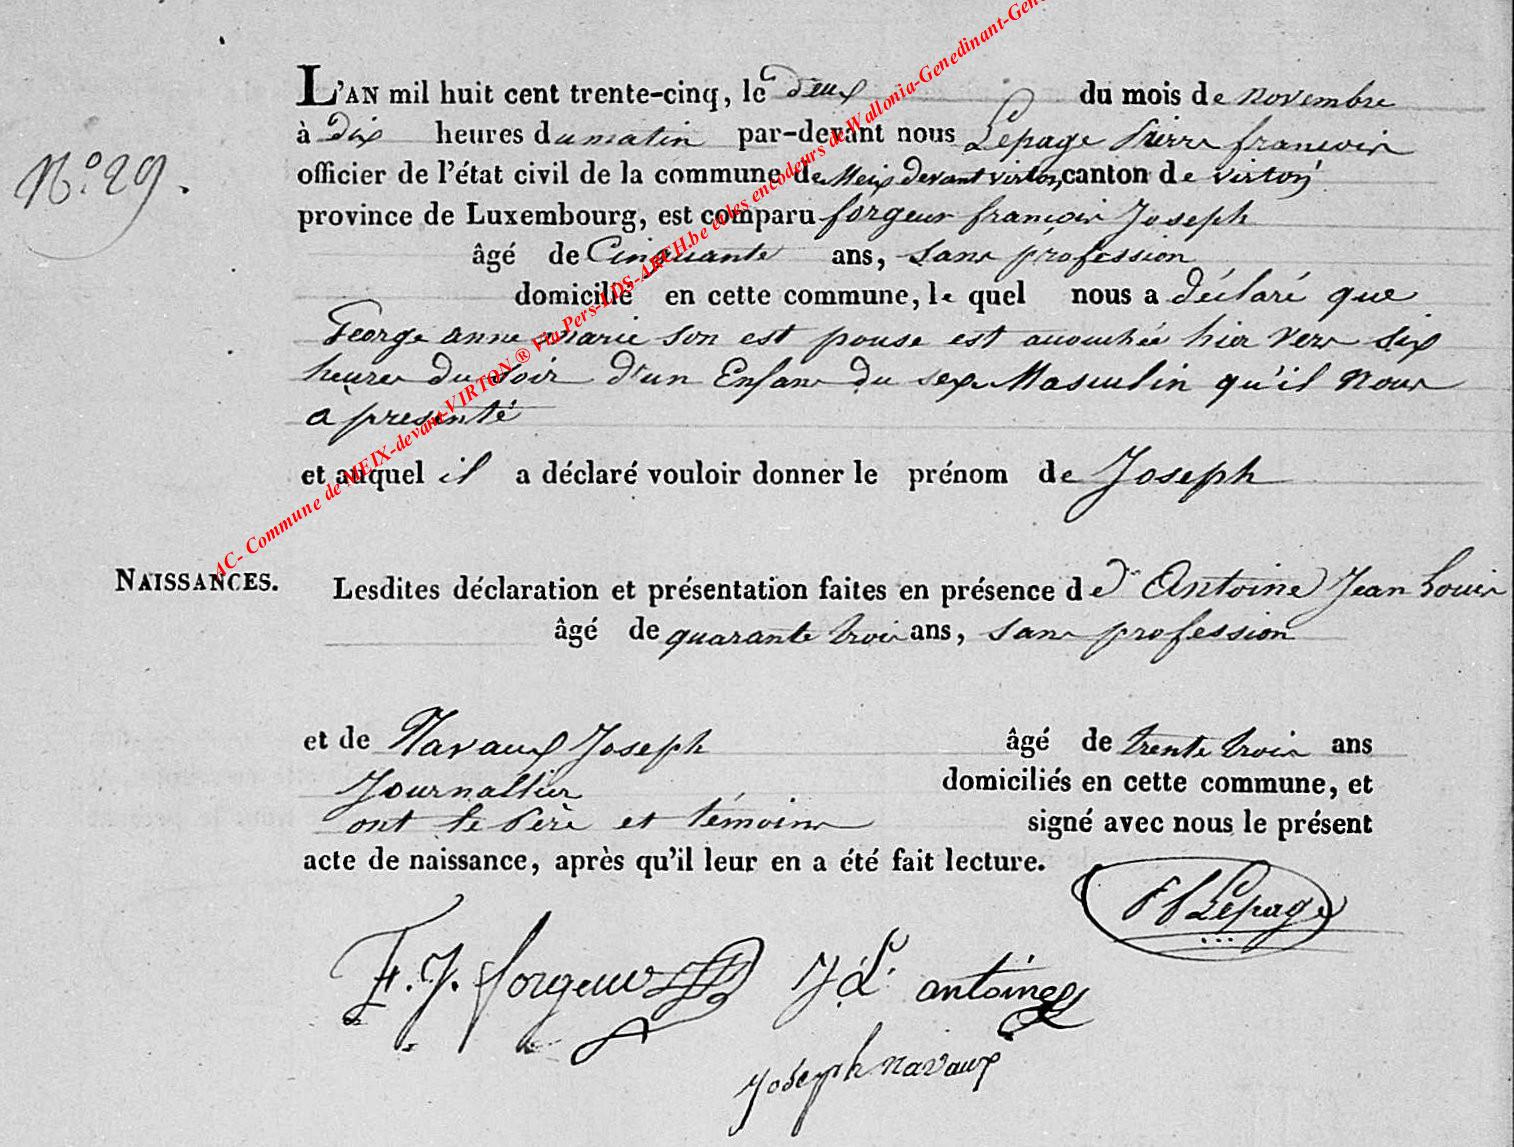 L'AN mil huit cent trente-cinq, le deux du mois de novembre
à dix heures du matin par-devant nous Lepage Pierre françois
N.° 29.
officier de l'état civil de la commune de Meix devant virton, canton de virton
province de Luxembourg, est comparu forgeur françois Joseph
âgé de Cinquante ans, sans profession
domicilié en cette commune, le quel nous a déclaré que
George anne marie son est pouse est accouchée hier vers six
heures du soir d'un Enfant du sexe Masculin qu'il nous
a présenté
et auquel il a déclaré vouloir donner le prénom de Joseph
NAISSANCES.
Lesdites déclaration et présentation faites en présence de Antoine Jean Louis
âgé de quarante trois ans, sans profession
et de Navaux Joseph âgé de trente trois ans
Journallier domiciliés en cette commune, et
ont le Père et témoins signé avec nous le présent
acte de naissance, après qu'il leur en a été fait lecture.
Lepage
F. J. forgeur J. L. antoine
Joseph navaux
AC- Commune de MEIX-devant-VIRTON ® Via Pers-LDS-ARCH.be et les encodeurs de Wallonia-Genedinant-Gen